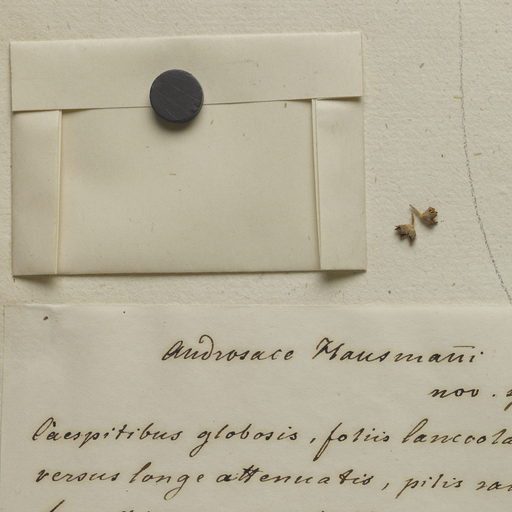 Androsace Hausmañi
nov.
Caespitibus globosis, foliis lanceola
versus longe attenuatis, pilis